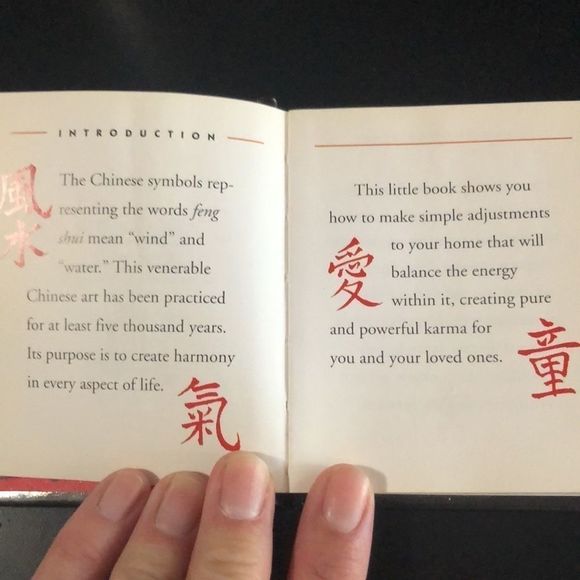 INTRODUCTION
風水
The Chinese symbols rep-
resenting the words feng
shui mean “wind” and
“water.” This venerable
Chinese art has been practiced
for at least five thousand years.
Its purpose is to create harmony
in every aspect of life.
氣
This little book shows you
how to make simple adjustments
to your home that will
愛
balance the energy
within it, creating pure
and powerful karma for
you and your loved ones.
童